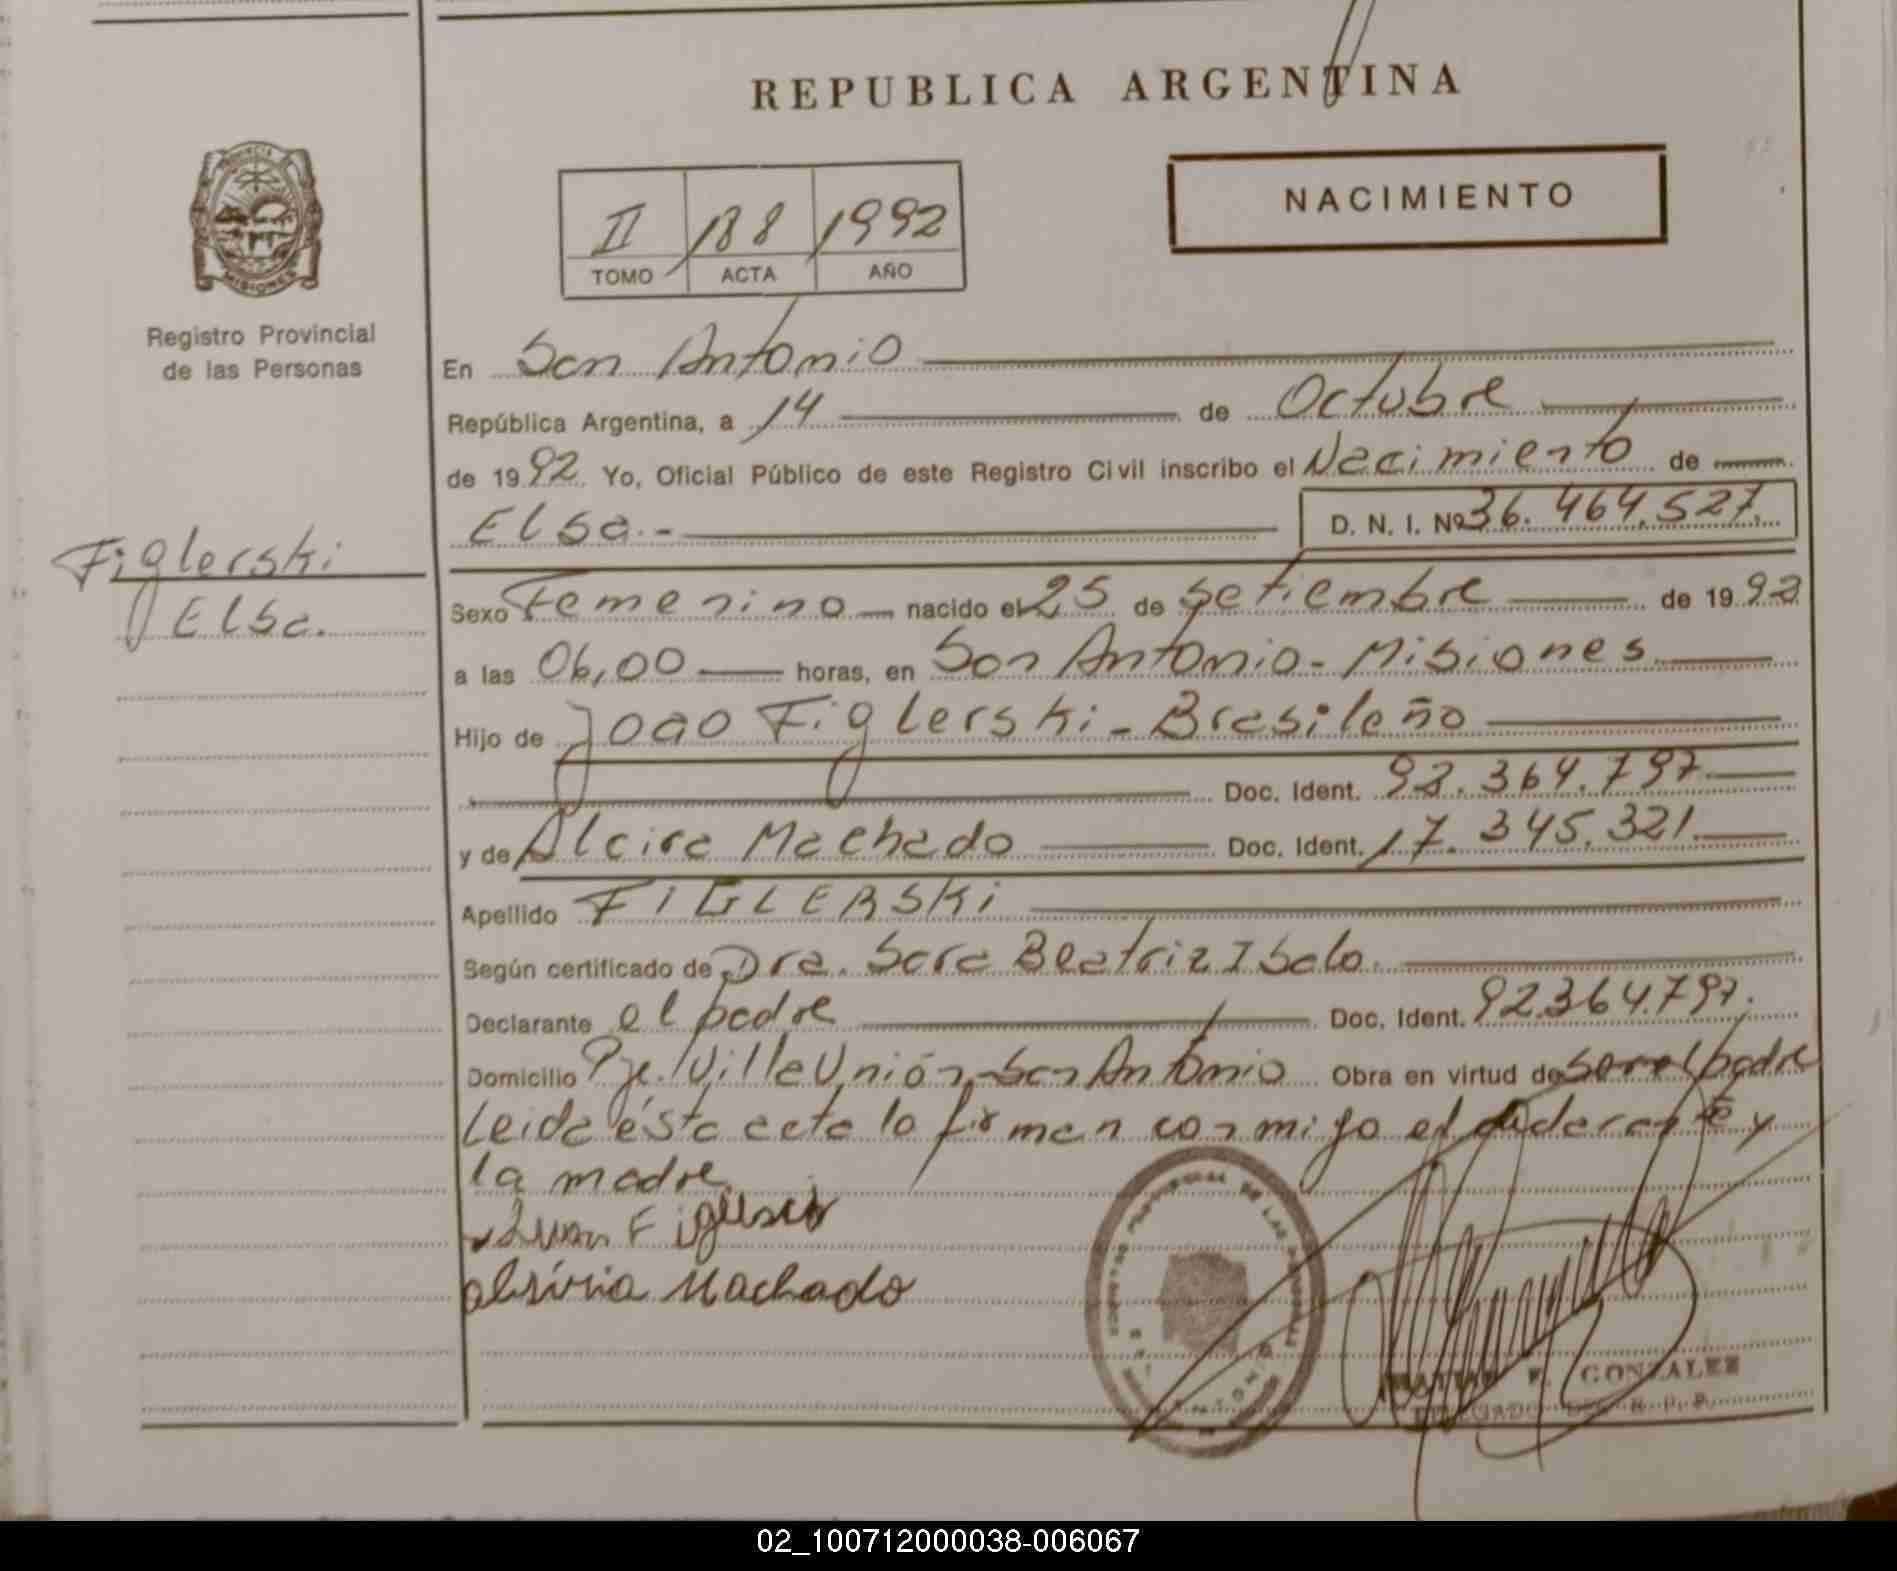 REPUBLICA ARGENTINA
NACIMIENTO
II 188 1992
TOMO ACTA AÑO
PROVINCIA DE
MISIONES
Registro Provincial
de las Personas
Figlerski
Elsa.
En San Antonio
República Argentina, a 14 de Octubre
de 1992 Yo, Oficial Público de este Registro Civil inscribo el Nacimiento de
Elsa.- D. N. I. Nº 36.464.527.
Sexo Femenino nacido el 25 de Setiembre de 1992
a las 06,00 horas, en San Antonio - Misiones
Hijo de Joao Figlerski - Brasileño
Doc. Ident. 92.364.797
y de Alcira Machado Doc. Ident. 17.345.321.
Apellido FIGLERSKI
Según certificado de Dra. Sara Beatriz Isolo.
Declarante el padre Doc. Ident. 92.364.797.
Domicilio Pje. Villa Unión - San Antonio Obra en virtud de ser el padre
Leida ésta acta la firman conmigo el y
la madre
Machado
GONZALEZ
DELEGADO DEL R. P. P.
02_100712000038-006067